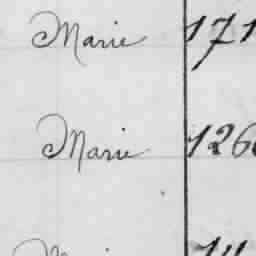 Marie 171
Marie 126